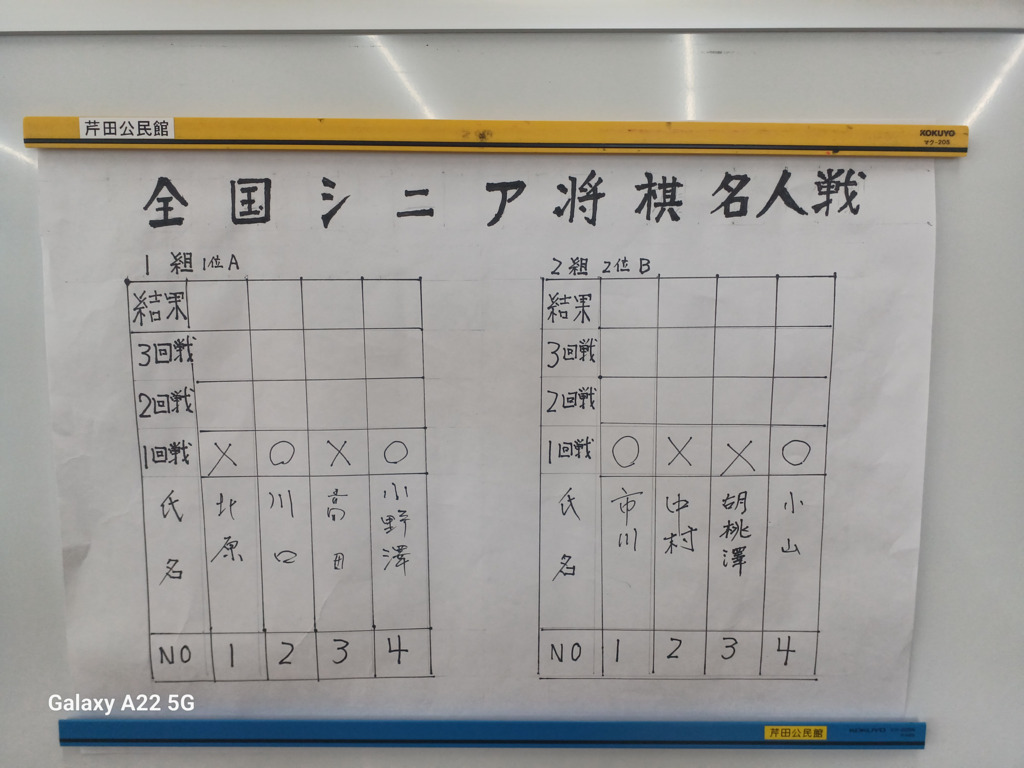 芹田公民館
KOKUYO
マク-205
全国シニア将棋名人戦
1組 1位A
結果
3回戦
2回戦
1回戦 × ○ × ○
氏名 北原 川口 高田 小野澤
NO 1 2 3 4
2組 2位B
結果
3回戦
2回戦
1回戦 ○ × × ○
氏名 市川 中村 胡桃澤 小山
NO 1 2 3 4
Galaxy A22 5G
芹田公民館
KOKUYO